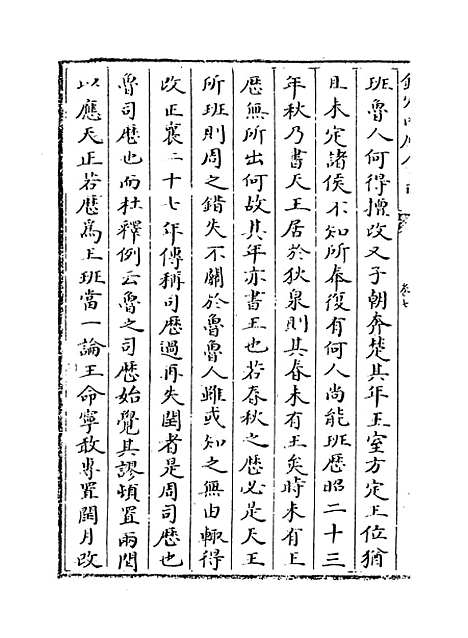 班魯人何得擅改又子朝奔楚其年王室方定王位猶
且未定諸侯不知所奉復有何人尚能班歴昭二十三
年秋乃書天王居於狄泉則其春未有王矣時未有王
歴無所出何故其年亦書王也若春秋之歴必是天王
所班則周之錯失不關於魯魯人雖或知之無由輙得
改正襄二十七年傳稱司歴過再失閏者是周司歴也
魯司歴也而杜釋例云魯之司歴始覺其謬頓置兩閏
以應天正若歴為王班當一論王命寧敢專置閏月改
卷七